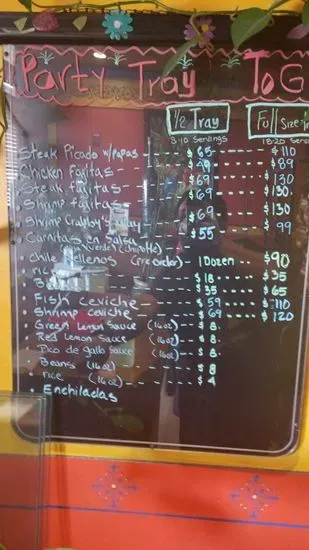 Party Tray To G
1/2 Tray Full Size Tr
8-10 Servings 18-20 Serv
Steak Picado w/papas - - - $65 - - - - $110
Chicken Fajitas - - - - $49 - - - - $89
Steak fajitas - - - - $69 - - - - $130
Shrimp fajitas - - - - $69 - - - - $130.
Shrimp Crabby's - - - - $69 - - - - $130
Carnitas en Salsa - - - - $55 - - - - $99
(Chipotle)
Chile Rellenos (Pre order) - 1 Dozen - - $90
ric - - - - $18 - - - - $35
B - - - - $35 - - - - $65
Fish ceviche - - - - $59 - - - - $110
Shrimp ceviche - - - - $69 - - - - $120
Green Lemon Sauce (16oz) - - - $8.
Red Lemon Sauce (16oz) - - - $8.
Pico de gallo Sauce (16oz) - - - $8.
Beans (16oz) - - - - $8
rice (16oz) - - - - $4
Enchiladas